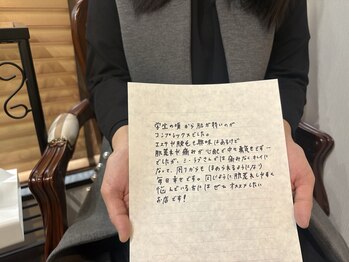 学生の頃から肌が弱いのが
コンプレックスでした。
エステや脱毛も興味はあるけど
肌荒れや痛みが心配で中々勇気もでず…
でしたが、ミ・ラクさんでは痛みなくキレイに
なって、周りからもほめられるようになり
毎日幸せです。同じように肌荒れしやすくて
悩んでいる方にはぜひオススメしたい
お店です！